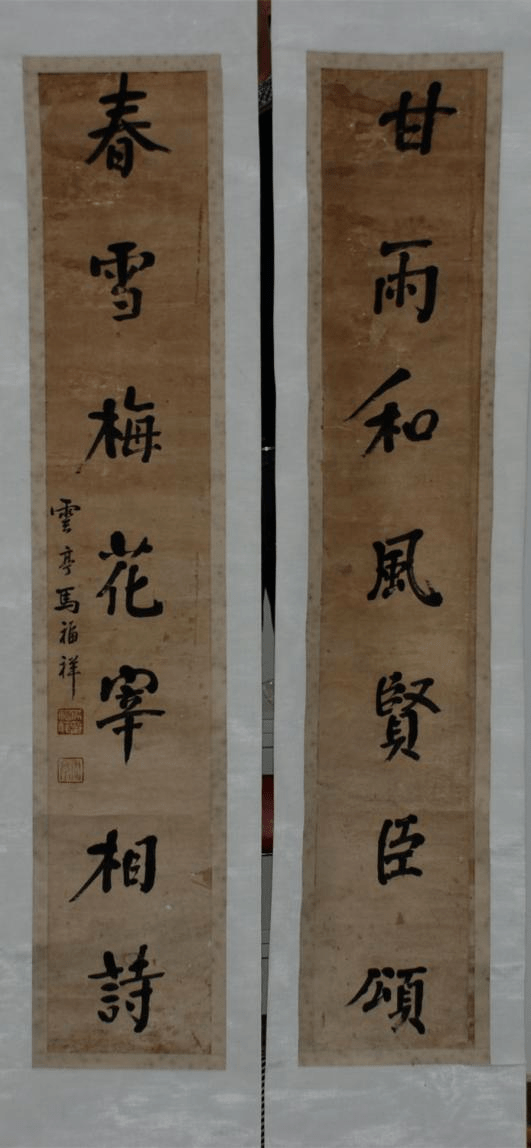 甘雨和風賢臣頌
春雪梅花宰相詩
雲亭馬福祥